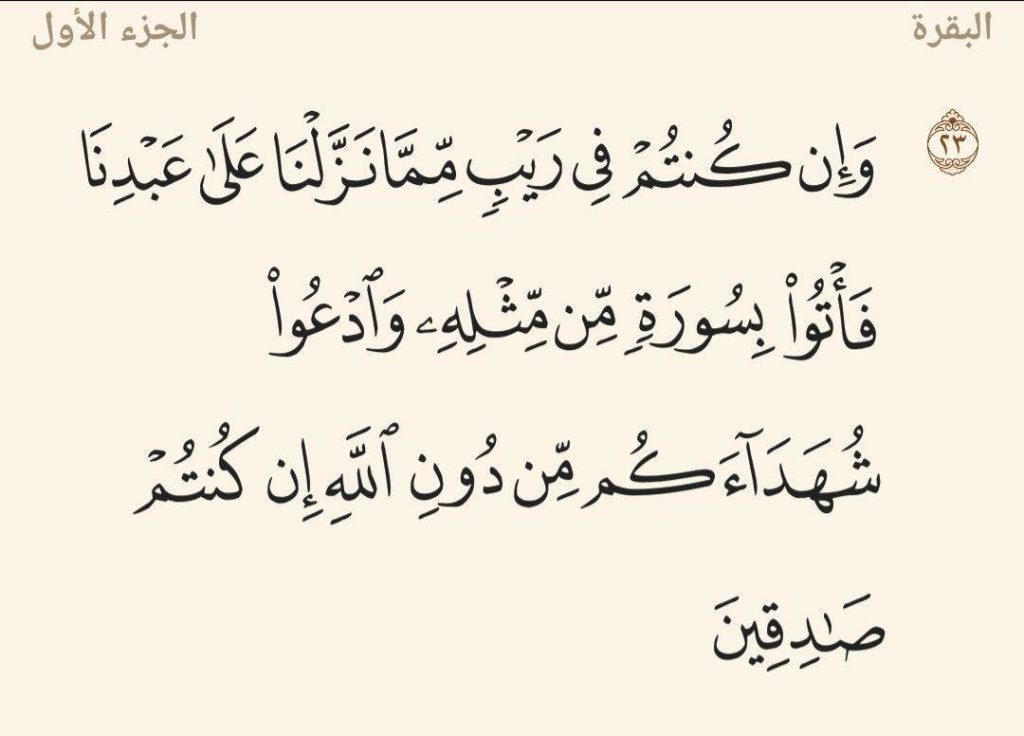 البقرة الجزء الأول
٢٣ وَإِن كُنتُمۡ فِي رَيۡبٖ مِّمَّا نَزَّلۡنَا عَلَىٰ عَبۡدِنَا
فَأۡتُواْ بِسُورَةٖ مِّن مِّثۡلِهِۦ وَٱدۡعُواْ
شُهَدَآءَكُم مِّن دُونِ ٱللَّهِ إِن كُنتُمۡ
صَٰدِقِينَ